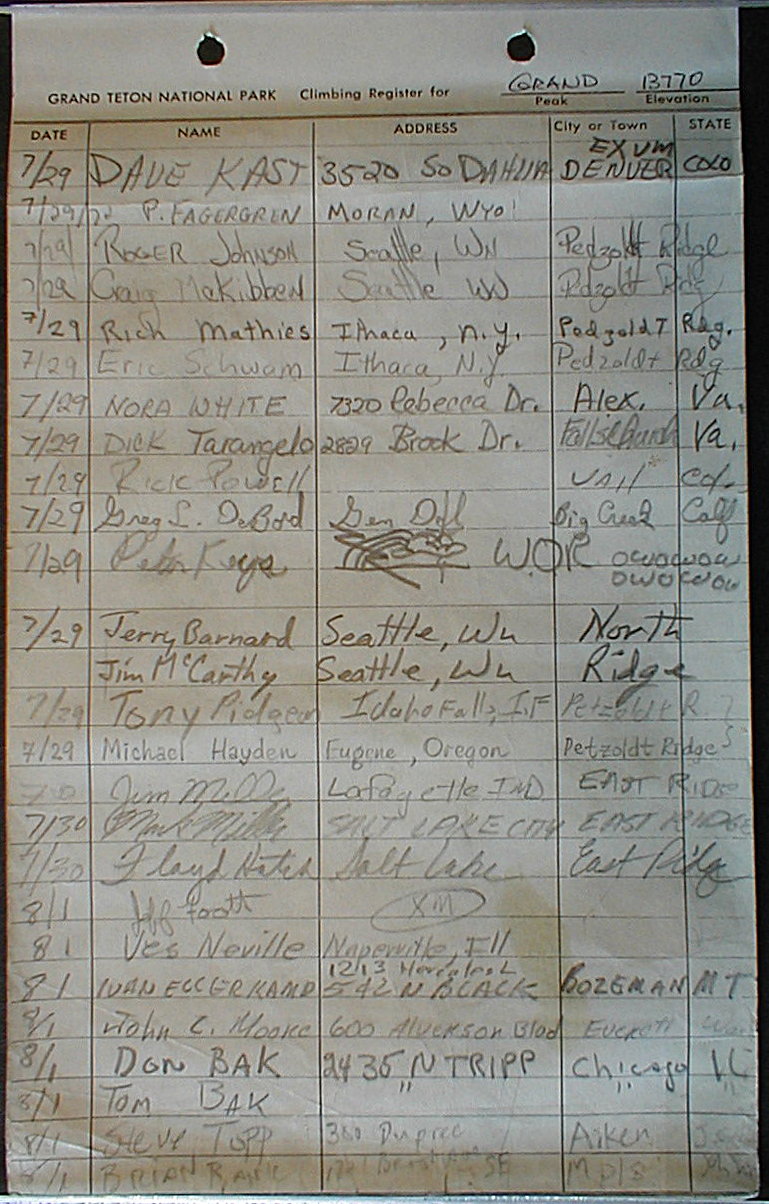 GRAND 13770
GRAND TETON NATIONAL PARK Climbing Register for Peak Elevation
DATE NAME ADDRESS City or Town STATE
EXUM
7/29 DAVE KAST 3520 SO DAHLIA DENVER COLO
7/29/72 P. FAGERGREN MORAN, WYO
7/29 ROGER JOHNSON Seattle, WN Pedzoldt Ridge
7/29 Craig McKibben Seattle WN Pedzoldt Rdg
7/29 Rich Mathies Ithaca, N.Y. Pedzoldt Rdg.
7/29 Eric Schwam Ithaca, N.Y Pedzoldt Rdg
7/29 NORA WHITE 7320 Rebecca Dr. Alex. Va.
7/29 DICK Tarangelo 2829 Brook Dr. Falls Church Va.
7/29 Rick Powell VAIL Col.
7/29 Greg L. DeBord Gen Del Big Creek Calf
7/29 WOR OWOWOW
OWOWOW
7/29 Jerry Barnard Seattle, Wn North
Jim McCarthy Seattle, Wn Ridge
7/29 Tony Pidgeon Idaho Falls, I.F Petzoldt R
7/29 Michael Hayden Eugene, Oregon Petzoldt Ridge
Jim Lafayette IND EAST RIDGE
7/30 SALT LAKE CITY EAST RIDGE
7/30 Floyd Hatch Salt Lake East Ridge
8/1 Jeff Foott XM
8 1 Ves Neville Naperville, Ill
12/13
8 1 IVAN EGGERKAMP 542 N BLACK BOZEMAN MT
8/1 John C. Moore 600 Blvd Everett
8/1 DON BAK 2435 N TRIPP Chicago IL
8/1 TOM BAK " " "
8/1 Steve Topp 380 Dupree Aiken
8/1 BRIAN SE Mpls